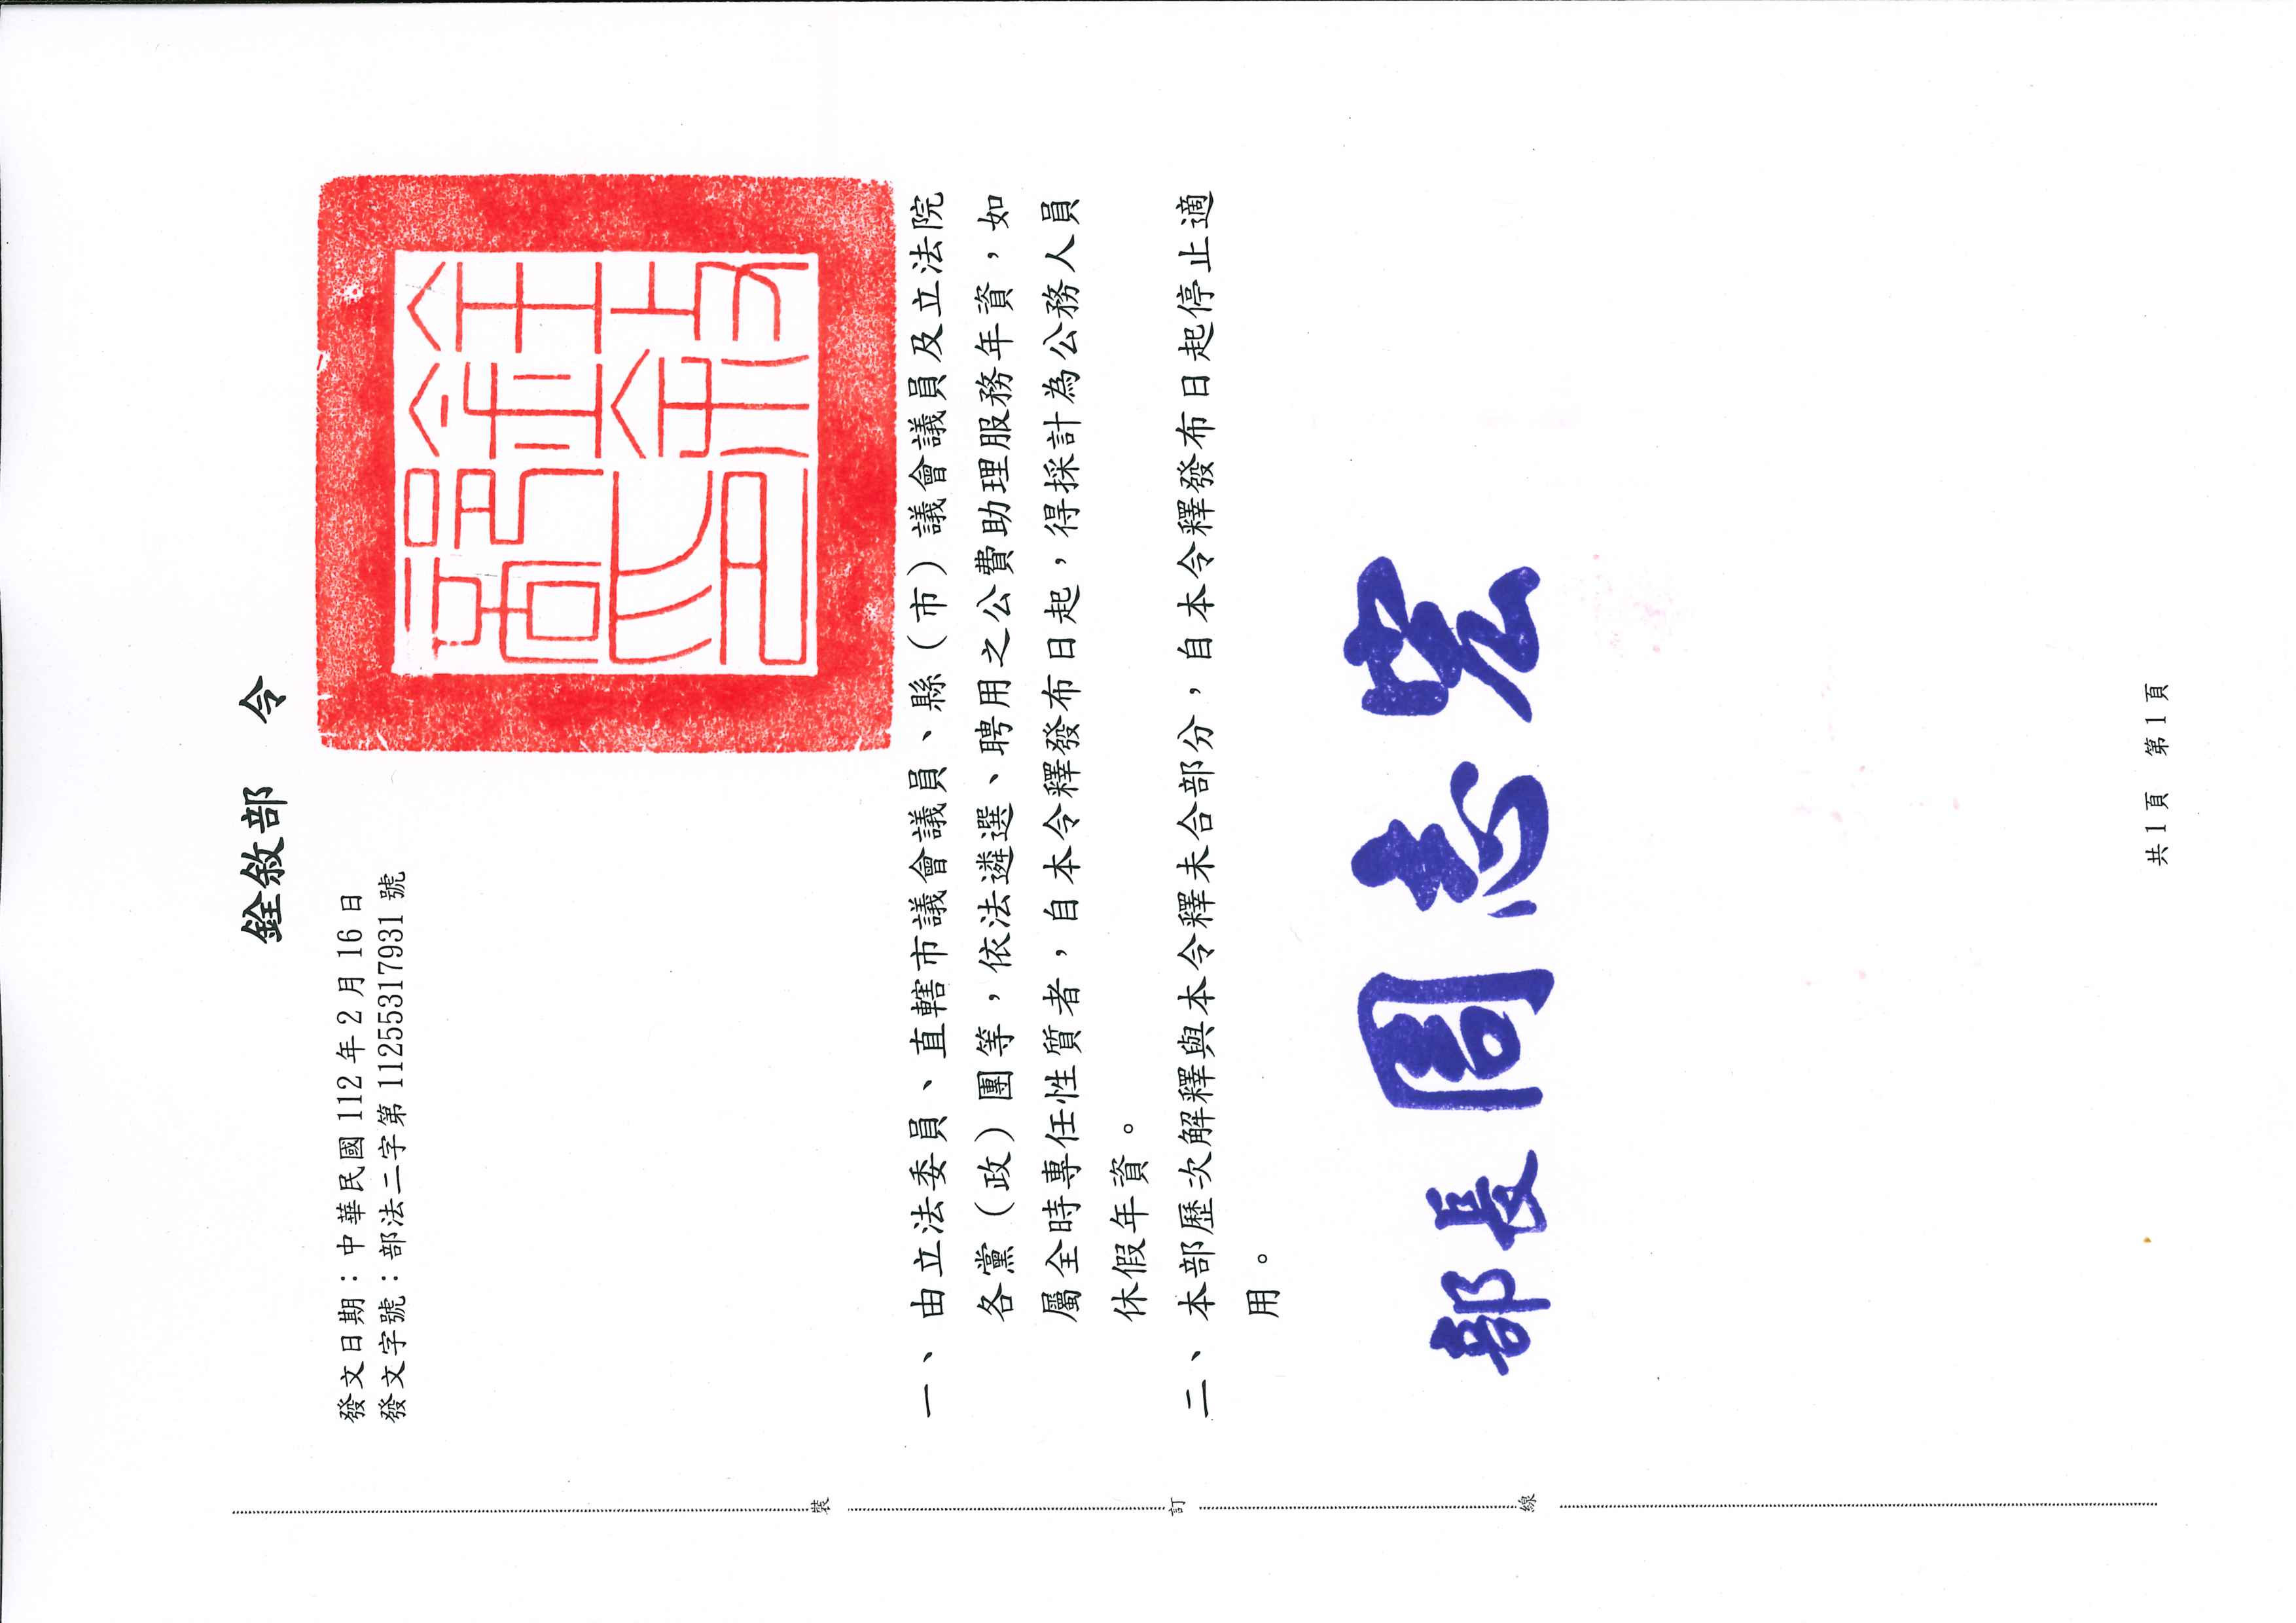 銓敘部　令
發文日期：中華民國112年2月16日
發文字號：部法二字第11255317931號
一、由立法委員、直轄市議會議員、縣（市）議會議員及立法院
各黨（政）團等，依法遴選、聘用之公費助理服務年資，如
屬全時專任性質者，自本令釋發布日起，得採計為公務人員
休假年資。
二、本部歷次解釋與本令釋未合部分，自本令釋發布日起停止適
用。
部長 周志宏
裝
訂
線
共1頁　第1頁